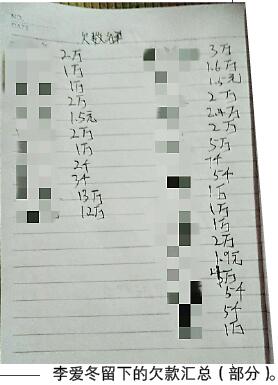 NO.
DATE
欠款
2万
1万
1万
2万
1.5元
2万
1万
2千
3千
13万
12万
3万
1.6万
1.5元
2万
2.4万
2万
5万
千
5千
1万
1万
1万
2万
1.9元
万
5千
5千
1万
李爱冬留下的欠款汇总（部分）。